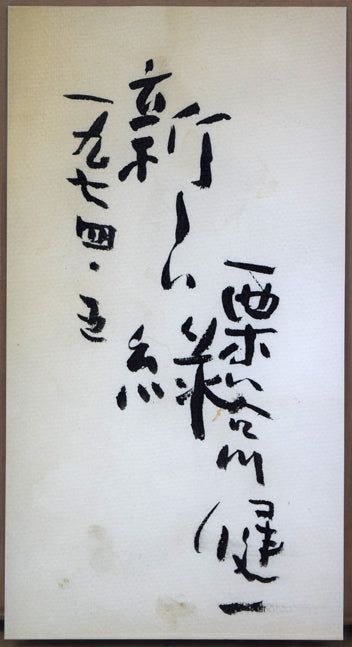 栗谷川健一
新しい緑
一九七四・五